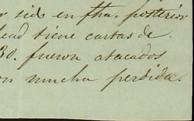 sido en tha. posterior
dad tiene cartas de
30. fueron atacados
con mucha perdida.